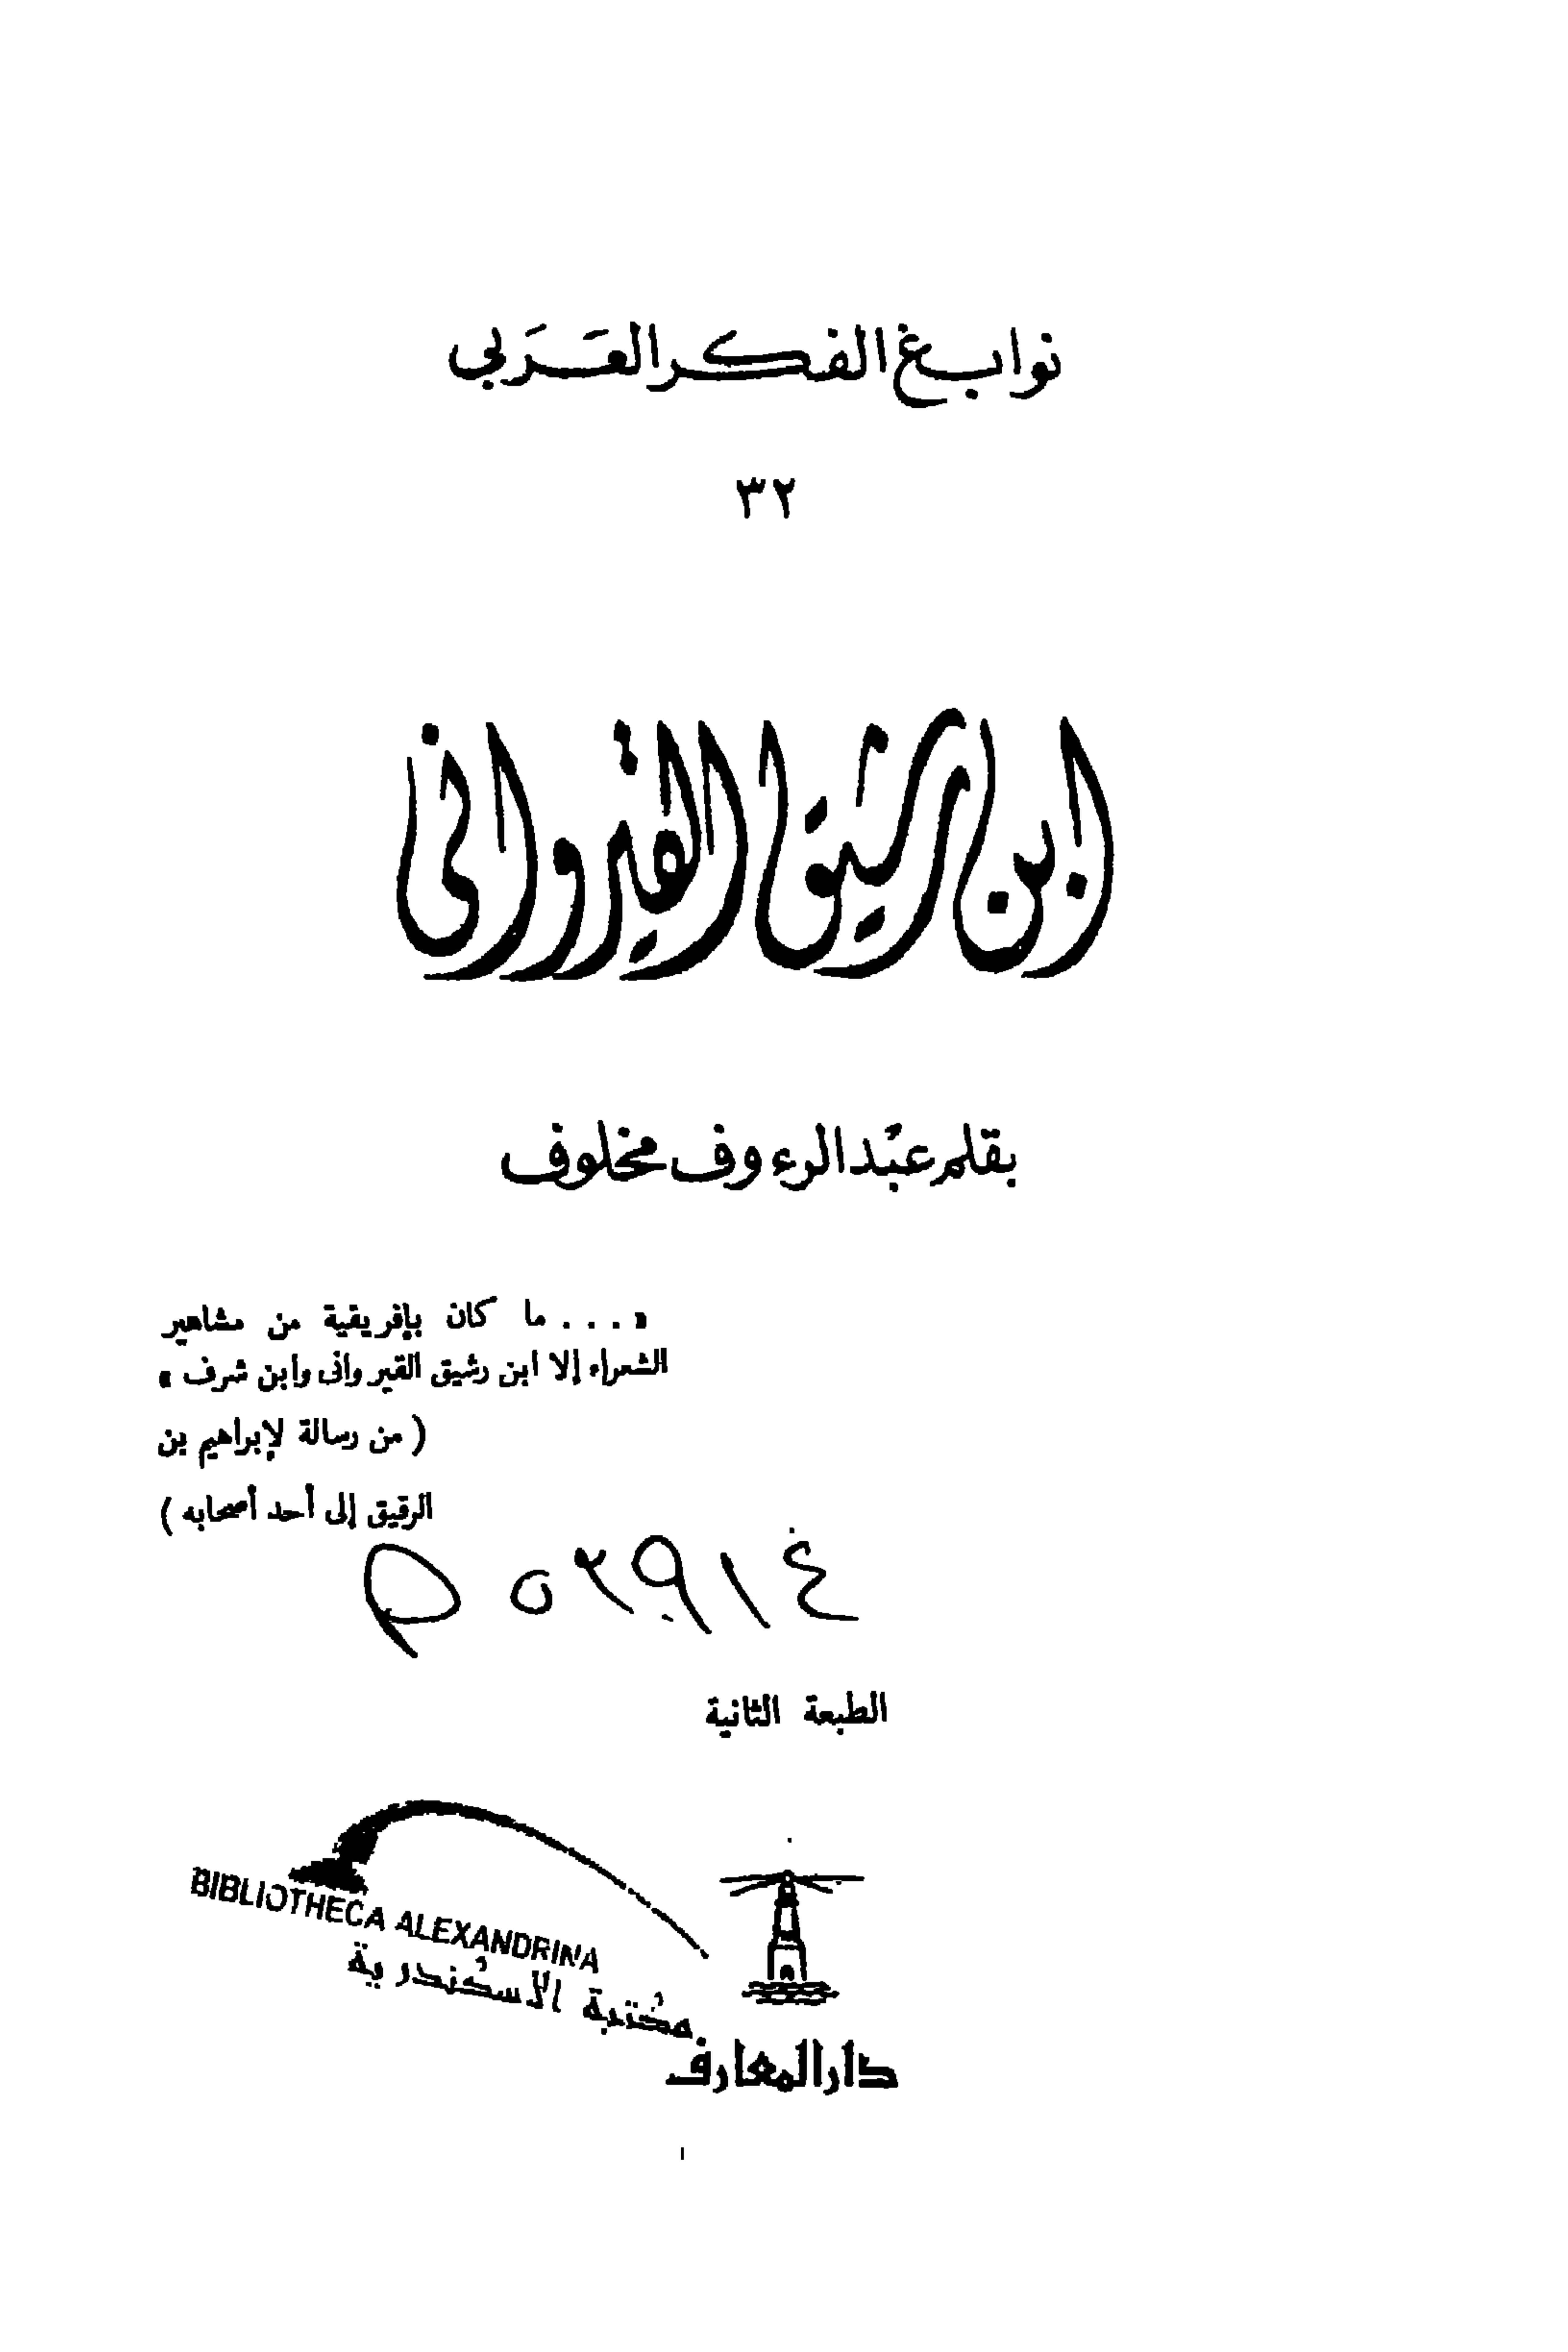 نوابغ الفكر العَرَبي
٣٢
ابن رشيق القيرواني
بقلم عبد الرءوف مخلوف
« . . . ما كان بإفريقية من مشاهير
الشعراء إلا ابن رشيق القيروانى وابن شرف »
( من رسالة لإبراهيم بن
الرقيق إلى أحد أصحابه )
الطبعة الثانية
BIBLIOTHECA ALEXANDRINA
مكتبة الأسكندرية
دار المعارف